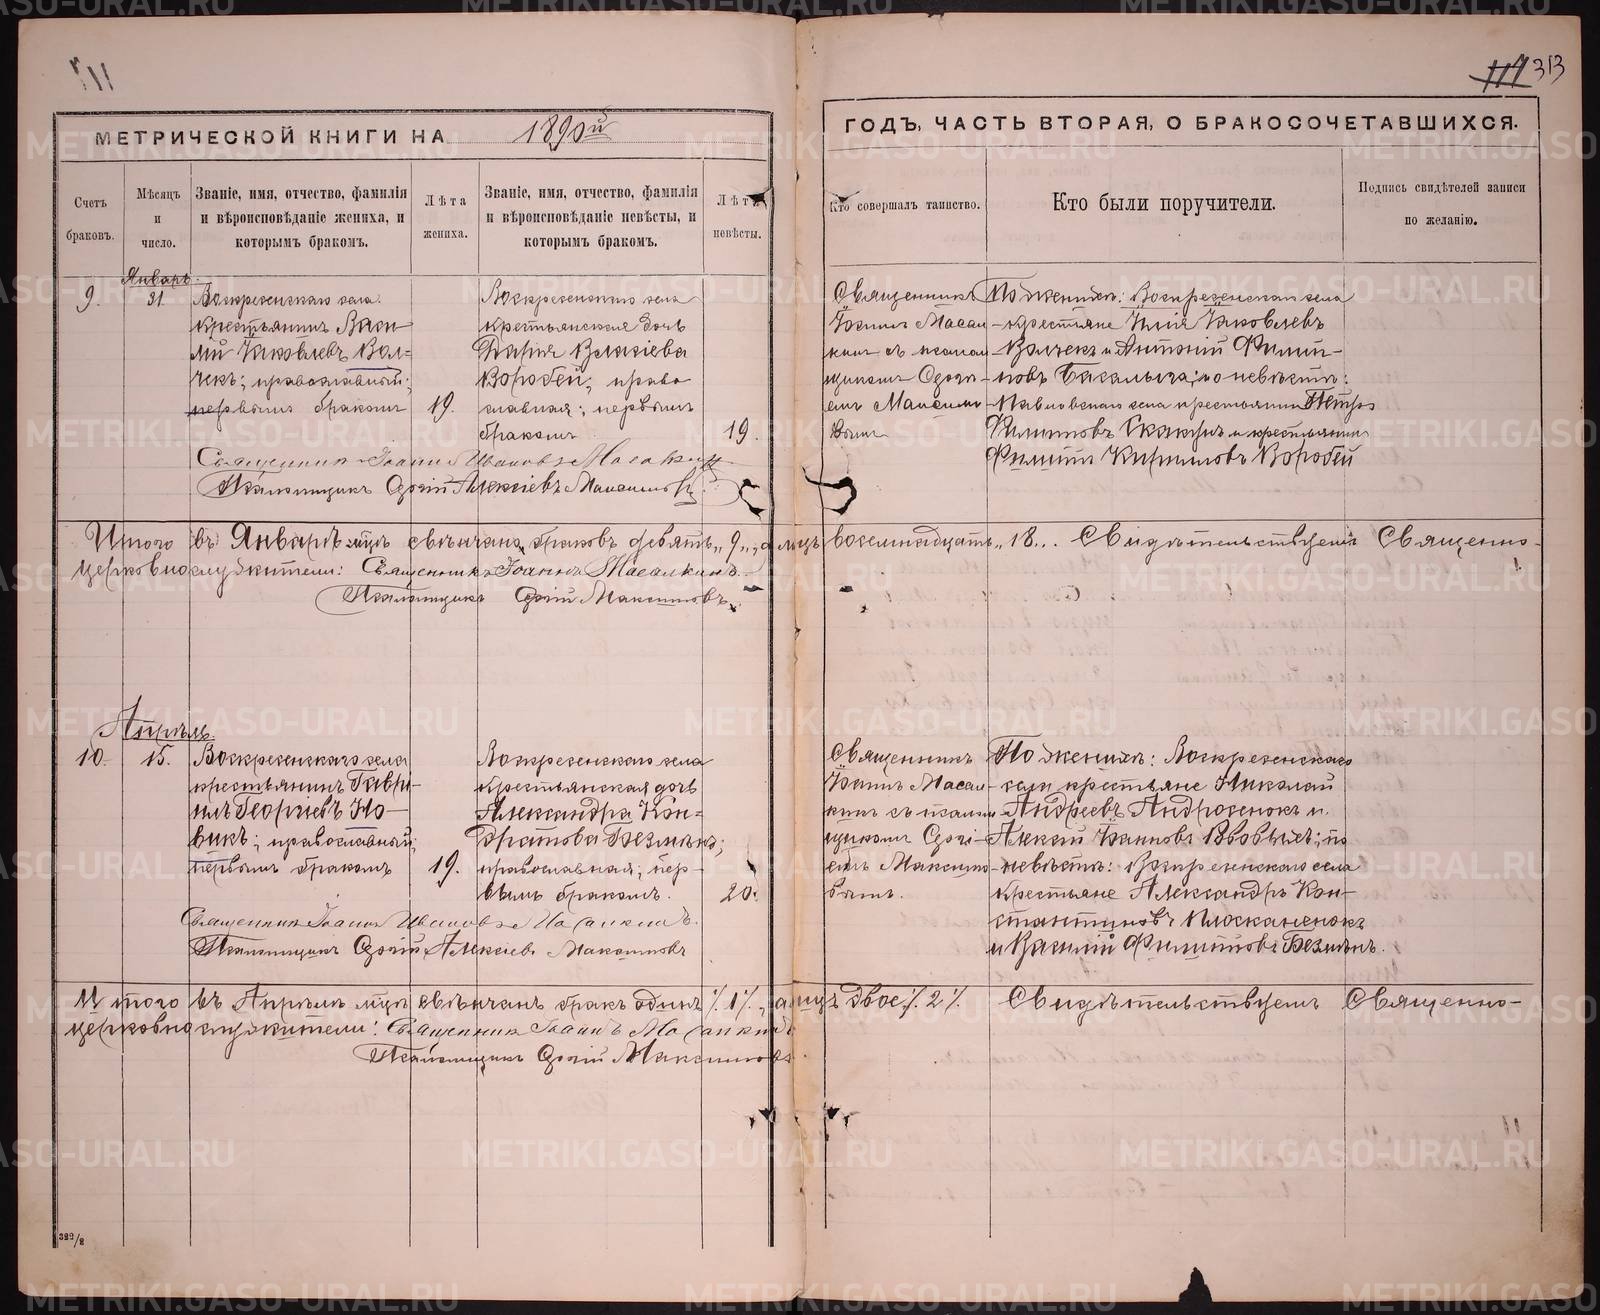 111 313
МЕТРИЧЕСКОЙ КНИГИ НА 1890й
ГОДЪ, ЧАСТЬ ВТОРАЯ, О БРАКОСОЧЕТАВШИХСЯ.
Счетъ браковъ.
Мѣсяцъ и число.
Званіе, имя, отчество, фамилія
и вѣроисповѣданіе жениха, и
которымъ бракомъ.
Лѣта жениха.
Званіе, имя, отчество, фамилія
и вѣроисповѣданіе невѣсты, и
которымъ бракомъ.
Лѣта невѣсты.
Кто совершалъ таинство.
Кто были поручители.
Подпись свидѣтелей записи
по желанію.
Январь.
9.
31.
Воскресенскаго села
крестьянинъ Васи-
лій Іаковлевъ Вол-
чекъ; православный;
первымъ бракомъ
19.
Воскресенскаго села
крестьянская дочь
Дарія Власіева
Воробей; право
славная; первымъ
бракомъ
19.
Священникъ
Іоаннъ Масал
кинъ съ псалом
щикомъ
емъ Максимо
вымъ
По женихѣ: Воскресенскаго села
крестьяне Илія Іаковлевъ
Волчекъ и Антоній Филип-
повъ по невѣстѣ:
села крестьянинъ Петръ
Филипповъ и крестьянинъ
Филиппъ Кириловъ Воробей
Священникъ Іоаннъ Ивановъ Масалкинъ
Псаломщикъ Алексіевъ Максимовъ.
Итого въ Январѣ мцѣ свѣнчано браковъ девять „9„, а лицъ восемнадцать „18„. Свидѣтельствуемъ Священно-
церковнослужители: Священникъ Іоаннъ Масалкинъ.
Псаломщикъ Максимовъ.
Апрѣль.
10.
15.
Воскресенскаго села
крестьянинъ Гаври-
илъ Георгіевъ Но-
викъ; православный;
первымъ бракомъ
19.
Воскресенскаго села
крестьянская дочь
Александра Кон-
дратова Безмѣнъ;
православная; пер-
вымъ бракомъ.
20.
Священникъ
Іоаннъ Масал
кинъ съ псалом
щикомъ
емъ Максимо
вымъ.
По женихѣ: Воскресенскаго
села крестьяне Николай
Андреевъ Андросенокъ и
Алексій Іоанновъ по
невѣстѣ: Воскресенскаго села
крестьяне Александръ Кон-
стантиновъ Плосканенокъ
и Василій Филипповъ Безмѣнъ.
Священникъ Іоаннъ Ивановъ Масалкинъ.
Псаломщикъ Алексіевъ Максимовъ
Итого въ Апрѣлѣ мцѣ свѣнчанъ бракъ одинъ ٪ 1 ٪, а лицъ двое ٪ 2 ٪ Свидѣтельствуемъ Священно-
церковнослужители: Священникъ Іоаннъ Масалкинъ
Псаломщикъ Максимовъ
322/2
METRIKI.GASO-URAL.RU